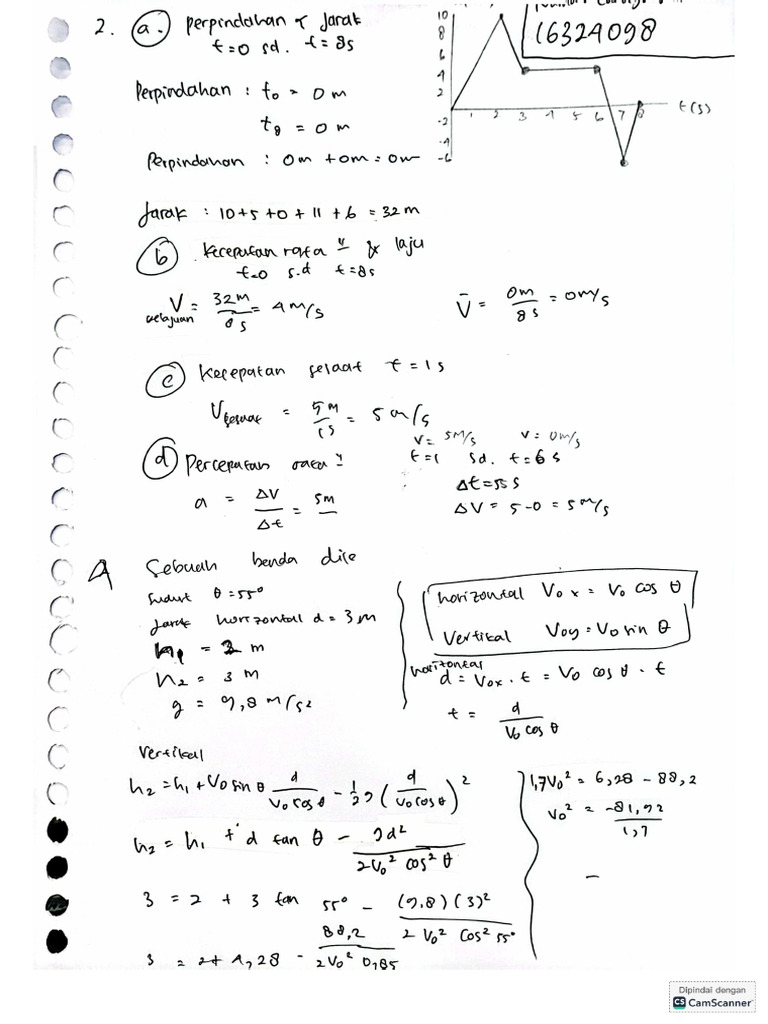 2. a. perpindahan & Jarak
t=0 sd. t=8s
Perpindahan : t₀ = 0 m
t₈ = 0 m
Perpindahan : 0m + 0m = 0m
Jarak : 10+5+0+11+6 = 32m
10
8
6
4
2
-2
-4
-6
1 2 3 4 5 6 7 8 t(s)
16324098
b Kecepatan rata" & laju
t=0 s.d t=8s
V = 32m/8s = 4m/s
kelajuan
V̄ = 0m/8s = 0m/s
c Kecepatan sesaat t=1s
Vsesaat = 5m/1s = 5 m/s
d Percepatan rata"
v= 5m/s v= 0m/s
t=1 sd. t=6s
Δt=5s
ΔV = 5-0 = 5m/s
a = ΔV/Δt = 5m
4 Sebuah benda dile
Sudut θ=55°
Jarak horizontal d = 3m
h₁ = 2 m
h₂ = 3 m
g = 9,8 m/s²
horizontal V₀x = V₀ cos θ
Vertikal V₀y = V₀ sin θ
horizontal
d = V₀x . t = V₀ cos θ . t
t = d/(V₀ cos θ)
Vertikal
h₂ = h₁ + V₀ sin θ d/(V₀ cos θ) - 1/2 g (d/(V₀ cos θ))²
h₂ = h₁ + d tan θ - gd²/(2V₀² cos² θ)
3 = 2 + 3 tan 55° - (9.8)(3)²/(2 V₀² cos² 55°)
3 = 2+ 4,28 - 88,2/(2V₀² 0,85)
1,7V₀² = 6,28 - 88,2
V₀² = -81,92/1,7
Dipindai dengan
CS CamScanner